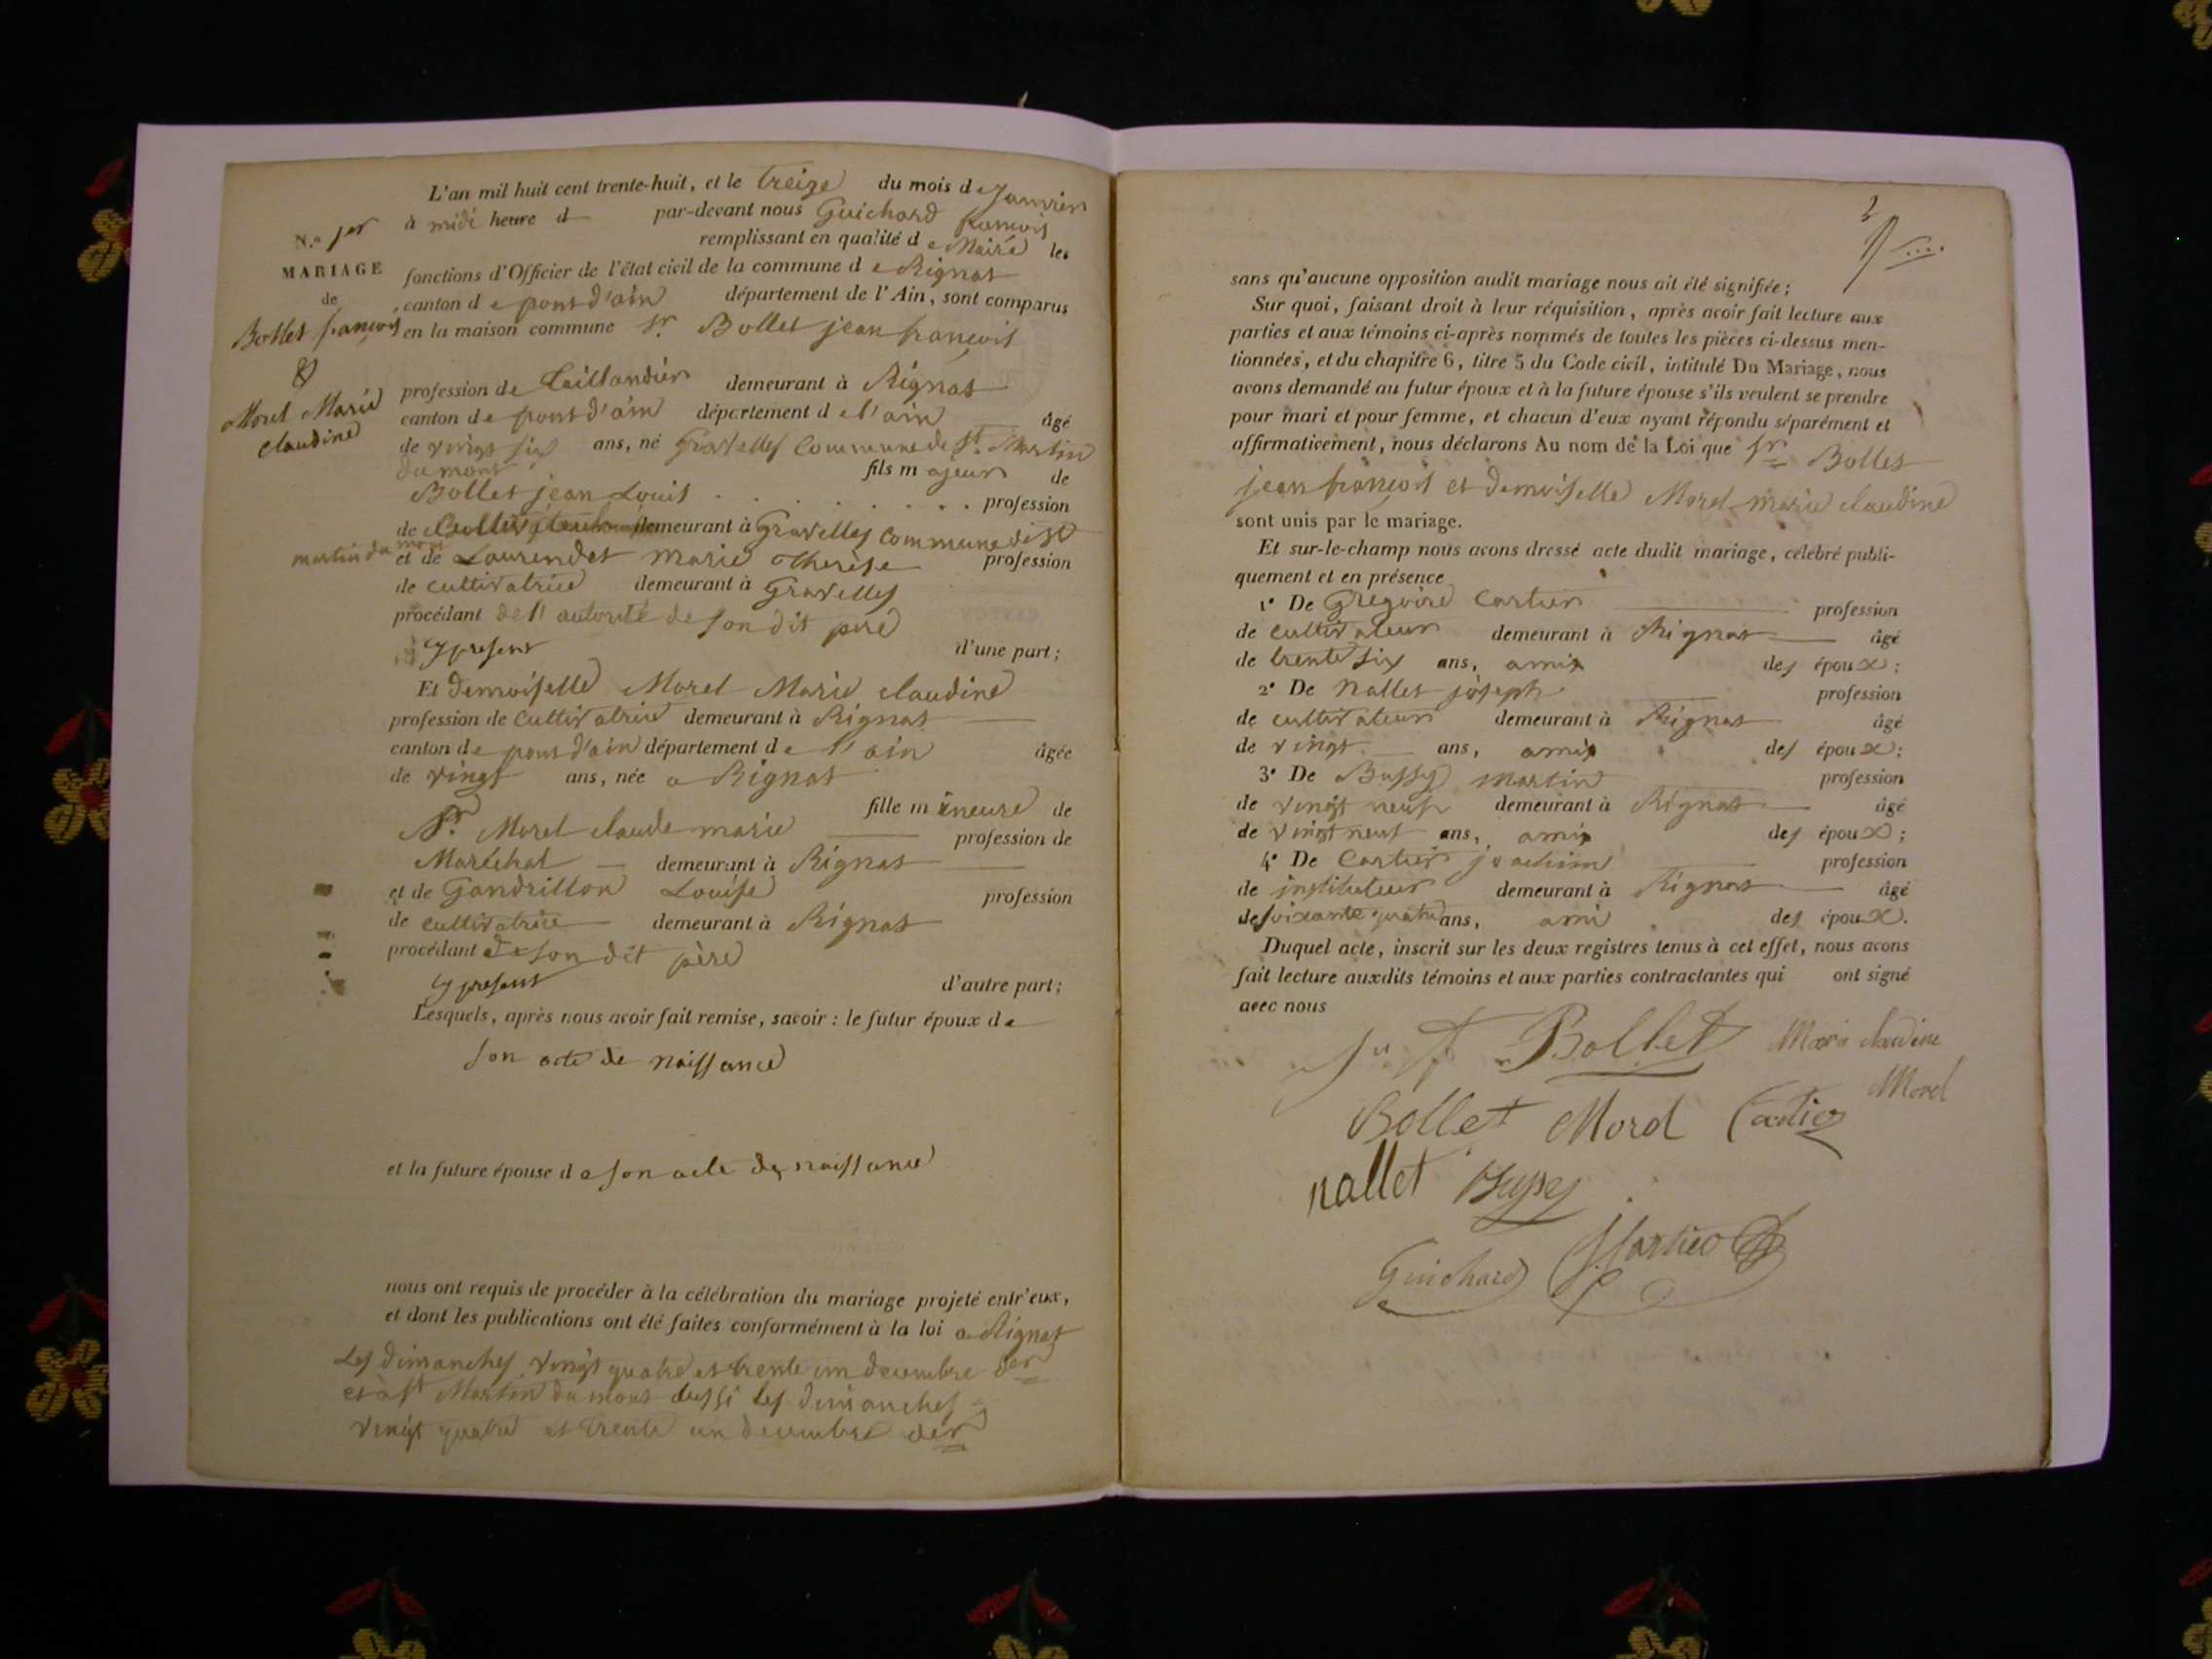 L'an mil huit cent trente-huit, et le treize du mois de Janvier
N.° 1er à midi heure d par-devant nous Guichard françois
remplissant en qualité de Maire les
MARIAGE fonctions d'Officier de l'état civil de la commune de Rignat
de canton de pont d'ain département de l'Ain, sont comparus
Bollet françois en la maison commune Sr. Bollet jean françois
&
profession de taillandier demeurant à Rignat
Morel Marie canton de pont d'ain département de l'ain âgé
claudine de vingt six ans, né Gravelles Commune de St. Martin
du mont fils majeur de
Bollet jean Louis profession
de demeurant à Gravelles commune de St
martin du mont et de Laurendet marie Therèse profession
de cultivatrice demeurant à Gravelles
procédant de l'autorité de son dit père
y present d'une part;
Et demoiselle Morel Marie claudine
profession de cultivatrice demeurant à Rignat
canton de pont d'ain département de l'ain âgée
de vingt ans, née a Rignat
fille mineure de
Sr. Morel claude marie profession de
Maréchal demeurant à Rignat
et de Gandrillon Louise profession
de cultivatrice demeurant à Rignat
procédant de son dit père
y present d'autre part;
Lesquels, après nous avoir fait remise, savoir: le futur époux de
son acte de naissance
et la future épouse de son acte de naissance
nous ont requis de procéder à la célébration du mariage projeté entr'eux,
et dont les publications ont été faites conformément à la loi a Rignat
Les dimanches vingt quatre et trente un decembre der
et à St Martin du mont aussi les dimanches
vingt quatre et trente un decembre der
2
sans qu'aucune opposition audit mariage nous ait été signifiée;
Sur quoi, faisant droit à leur réquisition, après avoir fait lecture aux
parties et aux témoins ci-après nommés de toutes les pièces ci-dessus men-
tionnées, et du chapitre 6, titre 5 du Code civil, intitulé Du Mariage, nous
avons demandé au futur époux et à la future épouse s'ils veulent se prendre
pour mari et pour femme, et chacun d'eux ayant répondu séparément et
affirmativement, nous déclarons Au nom de la Loi que Sr. Bollet
jean françois et demoiselle Morel marie claudine
sont unis par le mariage.
Et sur-le-champ nous avons dressé acte dudit mariage, célébré publi-
quement et en présence
1° De Grégoire Cartier profession
de cultivateur demeurant à Rignat âgé
de trente six ans, ami des époux;
2° De Nallet joseph profession
de cultivateur demeurant à Rignat âgé
de vingt ans, ami des époux;
3° De Bussy Martin profession
de vingt neuf demeurant à Rignat âgé
de vingt neuf ans, ami des époux;
4° De Cartier joachim profession
de instituteur demeurant à Rignat âgé
de soixante quatre ans, ami des époux.
Duquel acte, inscrit sur les deux registres tenus à cet effet, nous avons
fait lecture auxdits témoins et aux parties contractantes qui ont signé
avec nous
Bollet Marie claudine
Morel
Bollet Morel Cartier
nallet Bussy
Guichard J Cartier